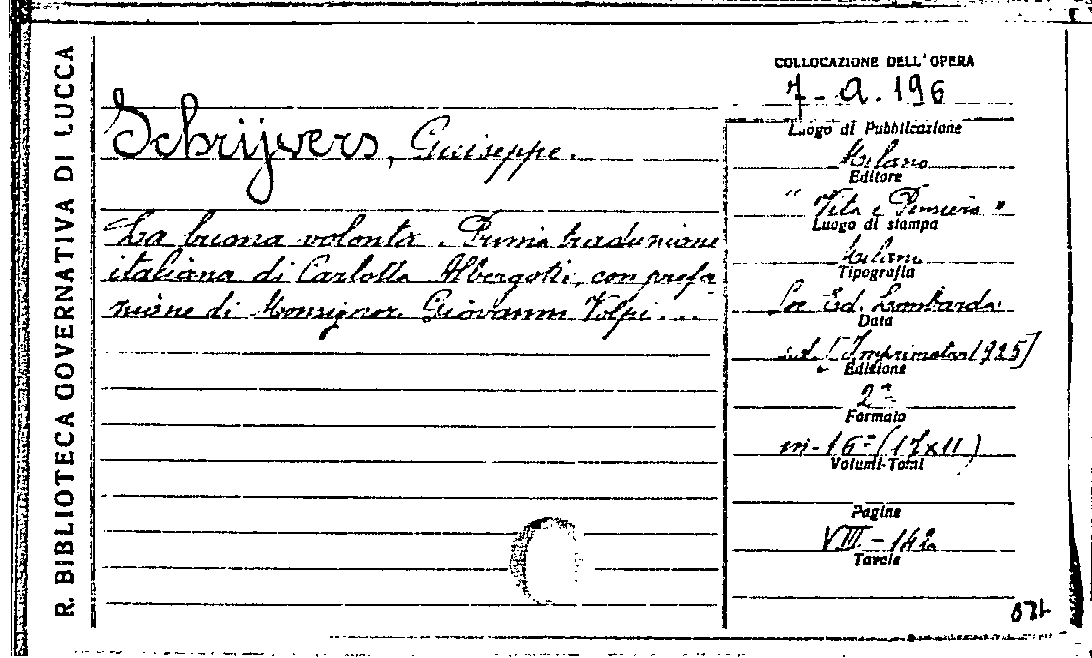 R. BIBLIOTECA GOVERNATIVA DI LUCCA
Schrijvers, Giuseppe.
La buona volontà. Prima traduzione
italiana di Carlotta Albergotti, con prefa
zione di Monsignor Giovanni Volpi...
COLLOCAZIONE DELL'OPERA
7-A.196
Luogo di Pubblicazione
Milano
Editore
"Vita e Pensiero"
Luogo di stampa
Milano
Tipografia
Soc. Ed. Lombarda
Data
s.d. [Imprimatur 1925]
Edizione
2ª
Formato
in-16° (17x11)
Volumi-Total
Pagine
VIII-142
Tavole